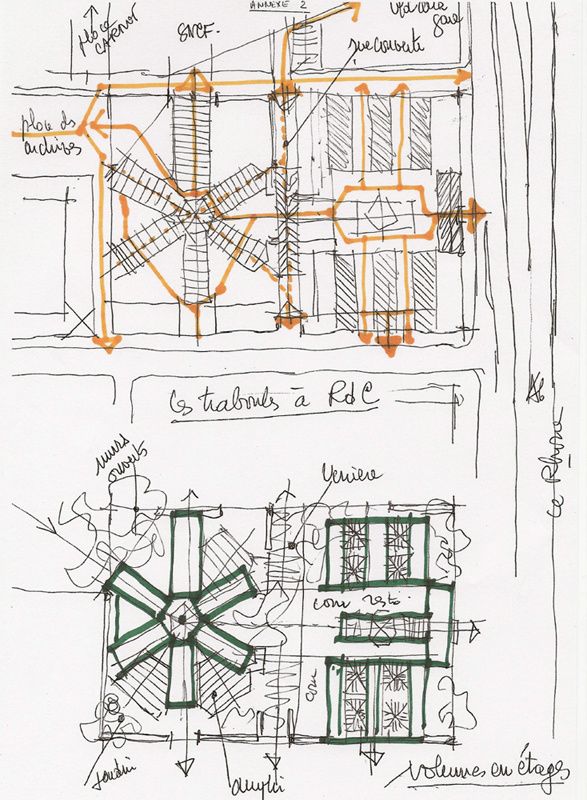 ANNEXE 2
place
CARNOT
SNCF.
gare
rue couverte
place des
archives
les traboules à RdC
A6
le Rhône
murs
ouverts
Verrière
cour resto.
cour
jardin
amphi
volumes en étages